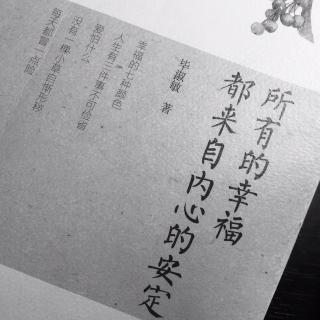 所有的幸福
都来自内心的安定
毕淑敏 著
幸福的七种颜色
人生有三件事不可俭省
爱怕什么
没有一棵小草自惭形秽
每天都冒一点险